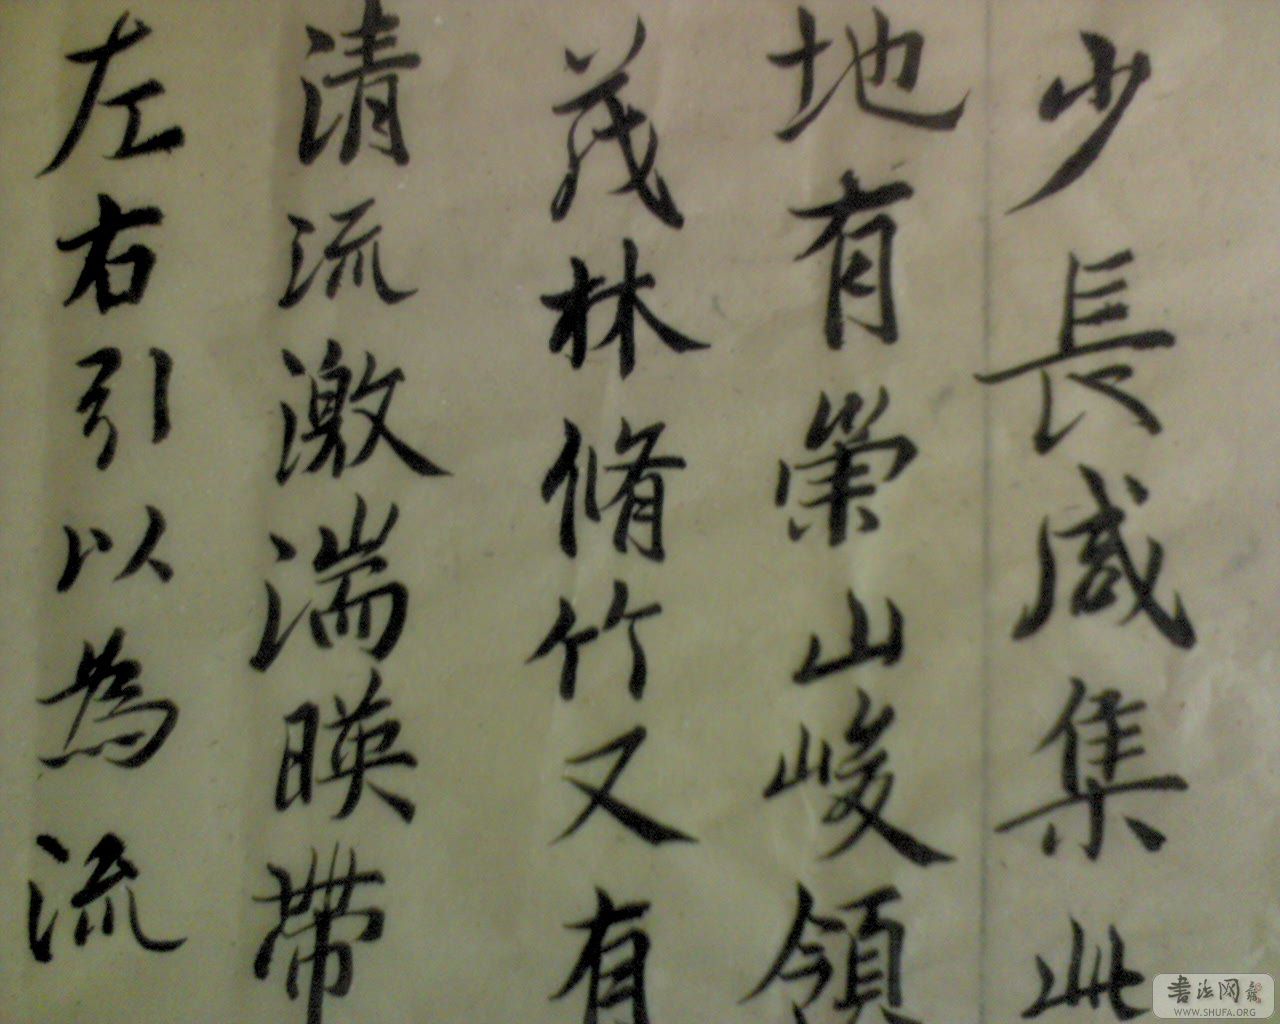 少長咸集此
地有崇山峻領
茂林脩竹又有
清流激湍暎帶
左右引以為流
書法网
WWW.SHUFA.ORG